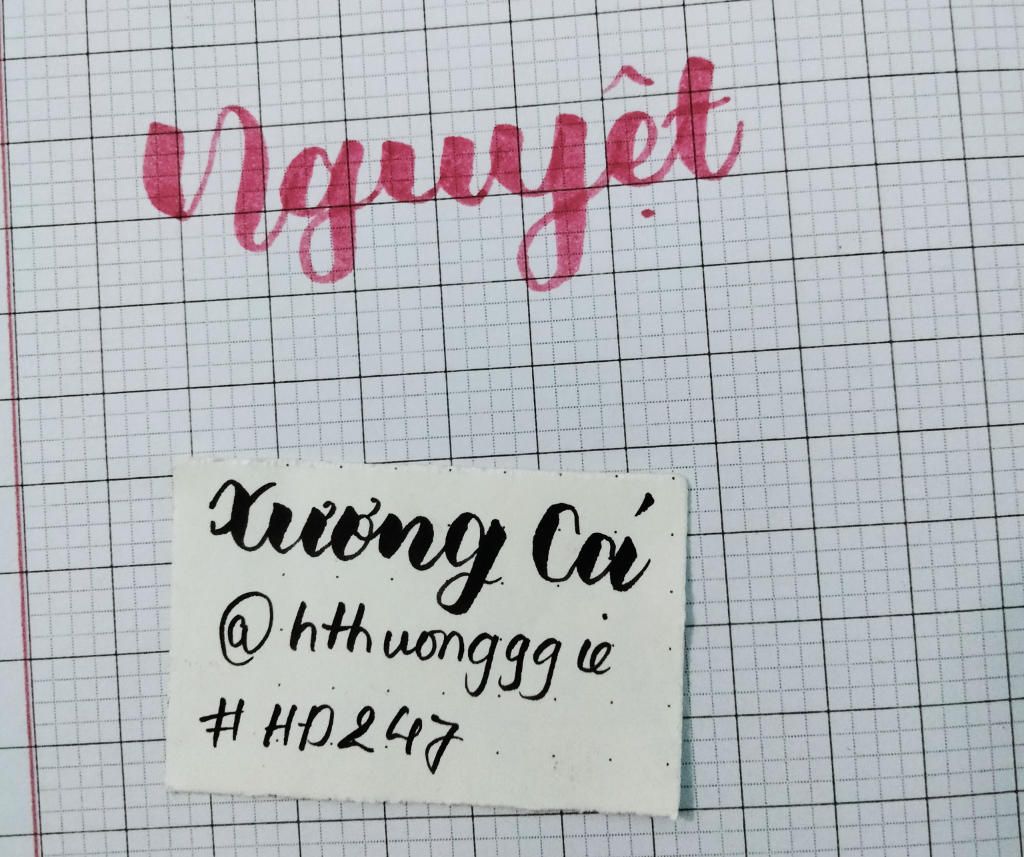 Nguyệt
Xương Cá
@hthuongggie
#HD247